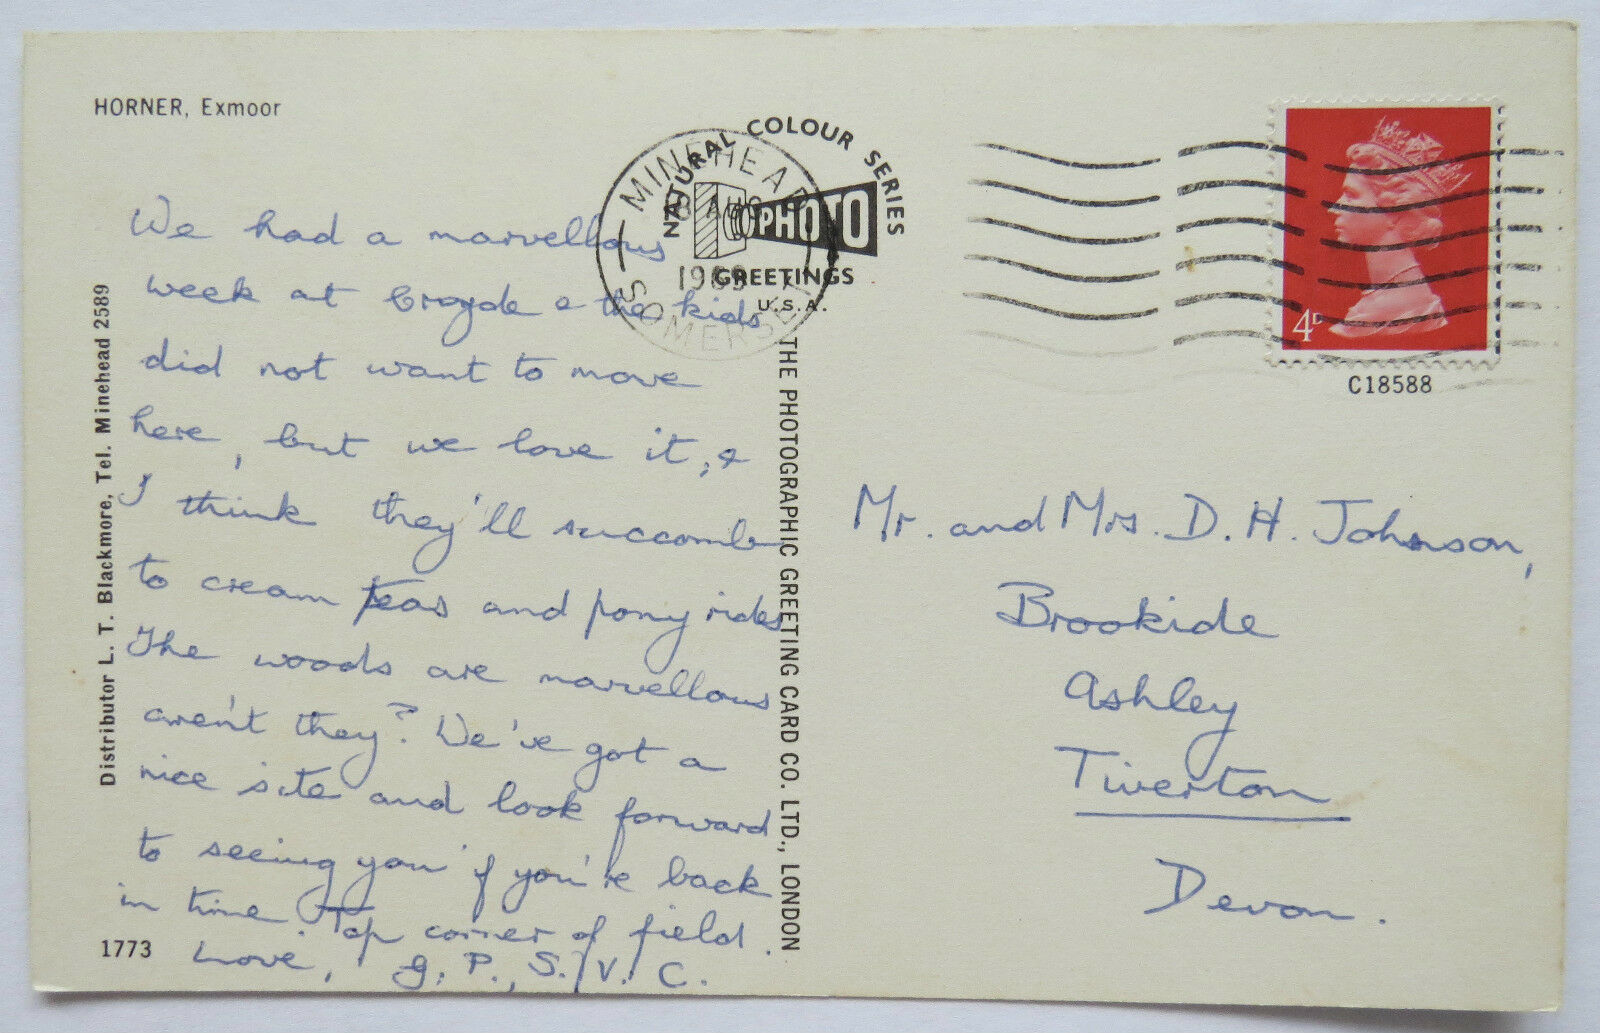 HORNER, Exmoor
We had a marvellous
week at Croyde & the kids
did not want to move
here, but we love it, &
I think they'll succomb
to cream teas and pony rides
The woods are marvellous
aren't they? We've got a
nice site and look forward
to seeing you if you're back
in time. Top corner of field.
Love, G. P., S. V. C.
1773
Distributor L. T. Blackmore, Tel. Minehead 2589
NATURAL COLOUR SERIES
PHOTO
GREETINGS
U.S.A.
MINEHEAD
AUG
1969
SOMERSET
THE PHOTOGRAPHIC GREETING CARD CO. LTD., LONDON
4D
C18588
Mr. and Mrs. D. H. Johnson,
Brookide
Ashley
Tiverton
Devon.